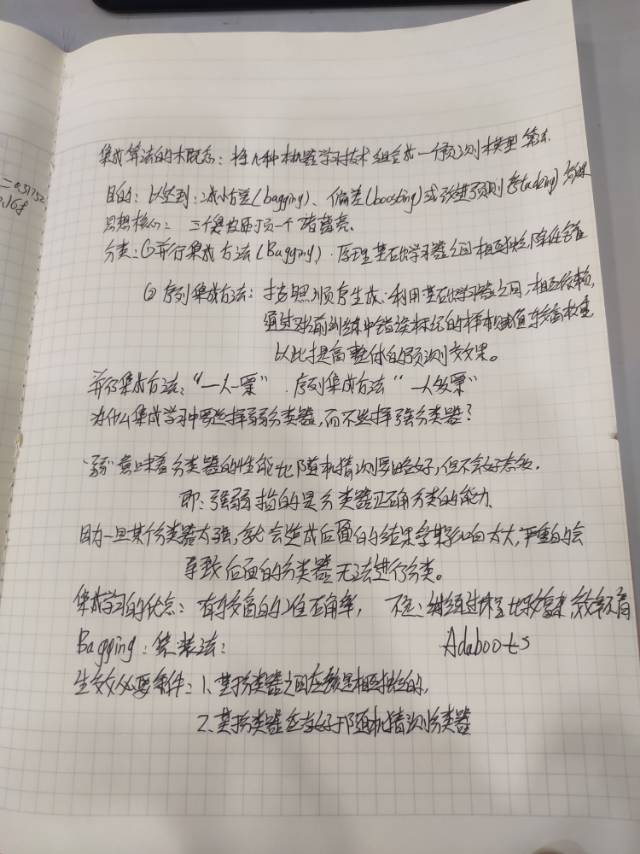 集成算法的木概念：将几种机器学习技术组合成一个预测模型算法
目的：以达到：减小方差(bagging)、偏差(boosting)或改进预测(stacking)效果
思想核心：三个臭皮匠顶一个诸葛亮.
分类：①并行集成方法(Bagging)．原理:基础学习器之间相互独立,降低方差
② 序列集成方法：按照顺序生成,利用基础学习器之间,相互依赖,
通过对之前训练中错误标记的样本赋值较高权重
以此提高整体的预测效果。
并行集成方法："一人一票" . 序列集成方法 "一人多票"
为什么集成学习中要选择弱分类器,而不选择强分类器?
"弱"意味着分类器的性能比随机猜测要略好,但不会好太多.
即：强弱指的是分类器正确分类的能力.
因为一旦某个分类器太强,就会造成后面的结果受影响太大,严重的会
导致后面的分类器无法进行分类。
集成学习的优点：有较高的准确率, 不足：训练过程比较复杂,效率不高
Bagging：装法： Adaboots
生效必要条件：1.基分类器之间应该是相互独立的,
2.基分类器应当好于随机猜测分类器
二0.51752
.168